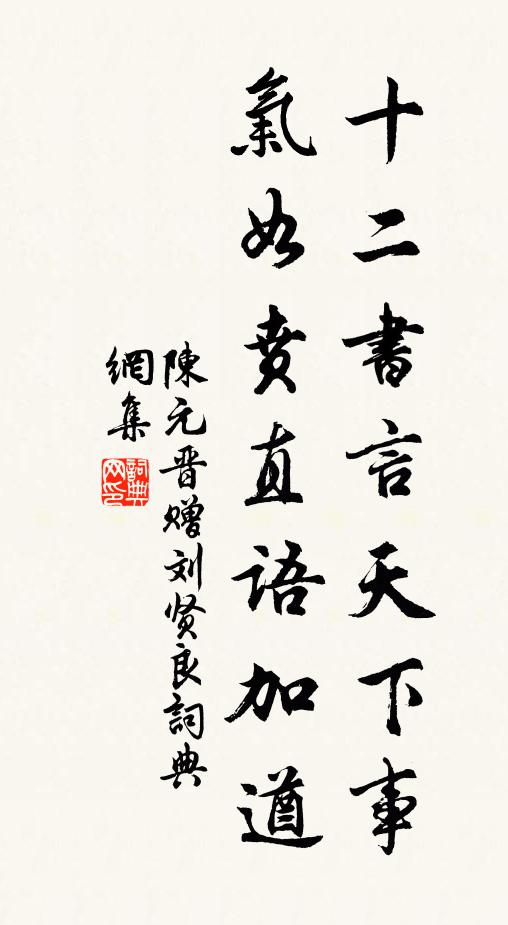 十二書言天下事
氣如賁直語加遒
陳元晋贈刘贤良詞典
網集
詞典
网印